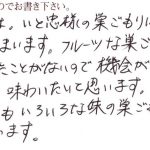 つでお書き下さい。
は。いと忠様の巣ごもりに
まいます。フルーツな巣ご
たことがないので機会が
味わいたいと思います。
もいろいろな味の巣ごも
います。